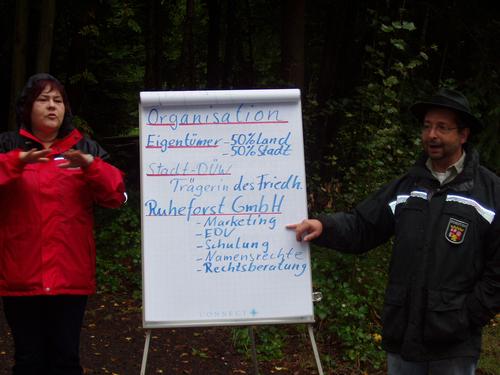 Organisation
Eigentümer - 50% Land
- 50% Stadt
Stadt-DÜW
Trägerin des Friedh.
Ruheforst GmbH
- Marketing
- EDV
- Schulung
- Namensrechte
- Rechtsberatung
CONNECT